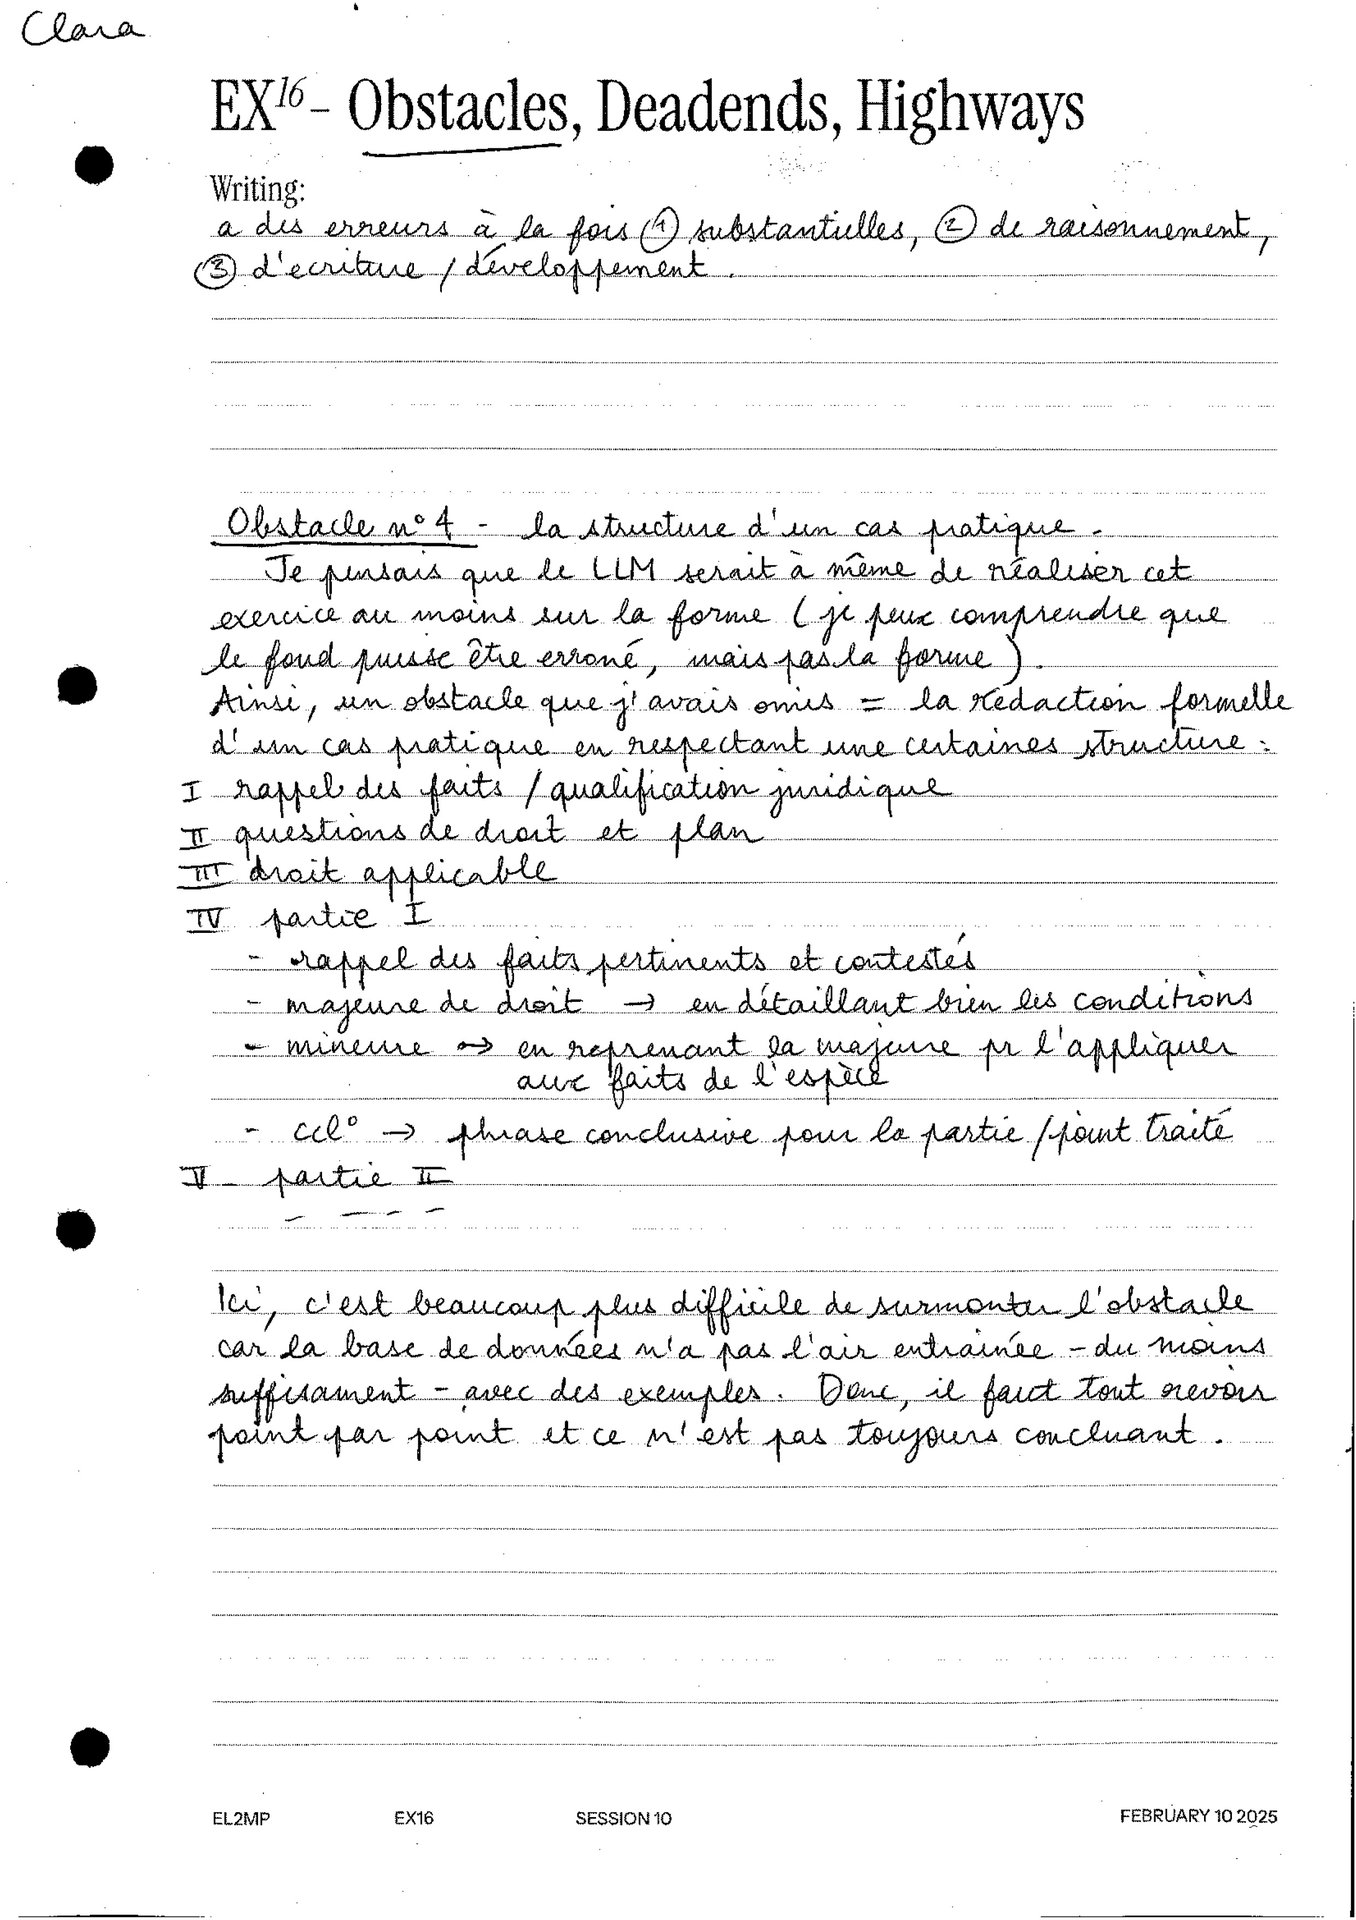 Clara
EX16 - Obstacles, Deadends, Highways
Writing:
a des erreurs à la fois ① substantielles, ② de raisonnement,
③ d'ecriture / développement.
Obstacle n° 4 - la structure d'un cas pratique.
Je pensais que le LLM serait à même de réaliser cet
exercice au moins sur la forme (je peux comprendre que
le fond puisse être erroné, mais pas la forme).
Ainsi, un obstacle que j'avais omis = la rédaction formelle
d'un cas pratique en respectant une certaines structure :
I rappel des faits / qualification juridique
II questions de droit et plan
III droit applicable
IV partie I
- rappel des faits pertinents et contestés
- majeure de droit → en détaillant bien les conditions
- mineure → en reprenant la majeure pr l'appliquer
aux faits de l'espèce
- ccl° → phrase conclusive pour la partie / point traité
V - partie II
- - - -
Ici, c'est beaucoup plus difficile de surmonter l'obstacle
car la base de données n'a pas l'air entrainée - du moins
suffisament - avec des exemples. Donc, il faut tout revoir
point par point et ce n'est pas toujours concluant.
EL2MP EX16 SESSION 10 FEBRUARY 10 2025